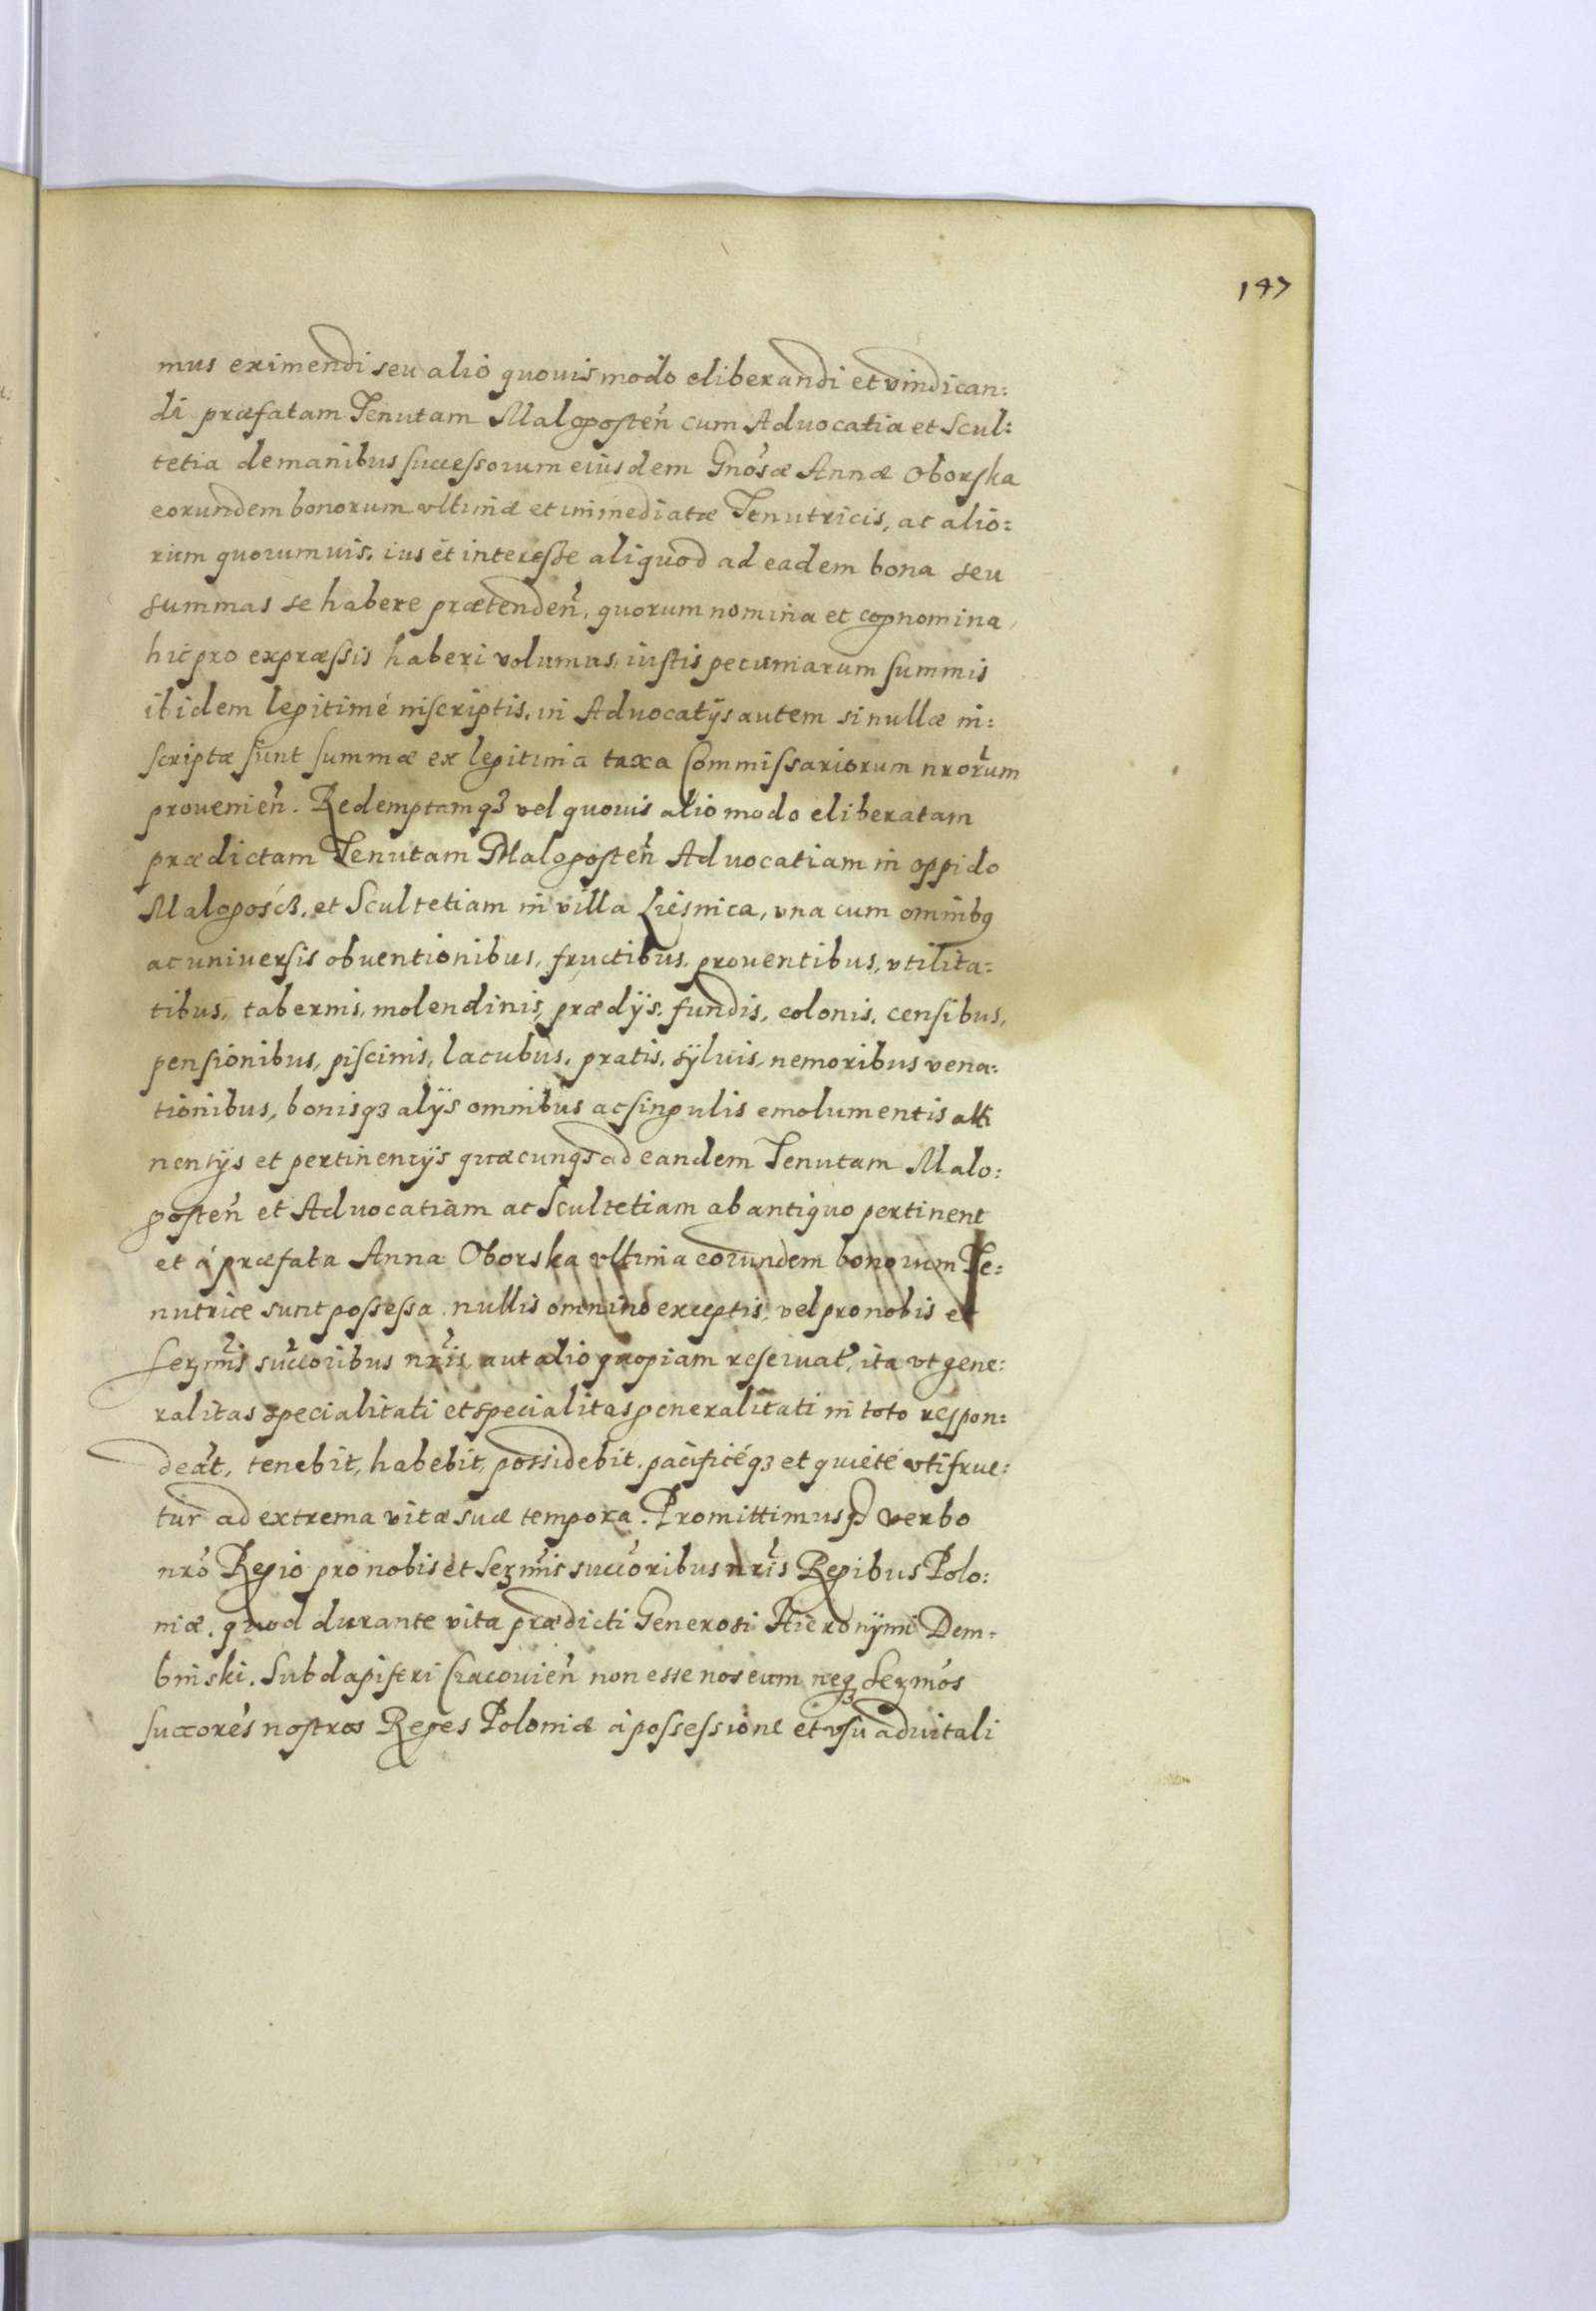 147
mus eximendi seu alio quouis modo eliberandi et vindican:
di præfatam Tenutam Malogosten̄ cum Aduocatia et Scul:
tetia de manibus successorum eiusdem Gnosæ Annæ Oborska
eorundem bonorum vltimæ et immediatæ Tenutricis, ac alio:
rum quorumuis, ius et interesse aliquod ad eadem bona seu
summas se habere prætenden̄, quorum nomina et cognomina
hic pro expræssis haberi volumus, iustis pecuniarum summis
ibidem legitimé inscriptis, in Aduocatijs autem si nullæ in:
scriptæ sunt summæ ex legitima taxa Commissariorum nrorum
prouenien̄. Redemptamqꝫ vel quouis alio modo eliberatam
prædictam Tenutam Malogosten̄ Aduocatiam in oppido
Malogość, et Scultetiam in villa Lieśnica, vna cum omnibꝯ
ac uniuersis obuentionibus, fructibus, prouentibus, vtilita:
tibus, tabernis, molendinis, prædijs, fundis, colonis, censibus,
pensionibus, piscinis, lacubus, pratis, syluis, nemoribus vena:
tionibus, bonisqꝫ alijs omnibus ac singulis emolumentis atti
nentijs et pertinentijs quæcunqꝫ ad eandem Tenutam Malo:
gosten̄ et Aduocatiam ac Scultetiam ab antiquo pertinent
et á præfata Anna Oborska vltima eorundem bonorum Te:
nutrice sunt possessa nullis omnino exceptis, vel pro nobis et
serm̄is succoribus nris, aut alio quopiam reseruat, ita vt gene:
ralitas specialitati et specialitas generalitati in toto respon:
deat, tenebit, habebit, possidebit, pacificéqꝫ et quieté vtifrue:
tur ad extrema vitæ suæ tempora. Promittimusqꝫ verbo
nro Regio pro nobis et Serm̄is succoribus nris Regibus Polo:
niæ, quod durante vita prædicti Generosi Hieronymi Dem:
binski, Subdapiferi Cracouien̄ non esse nos eum neqꝫ Serm̄os
succores nostros Reges Poloniæ á possessione et vsu aduitali